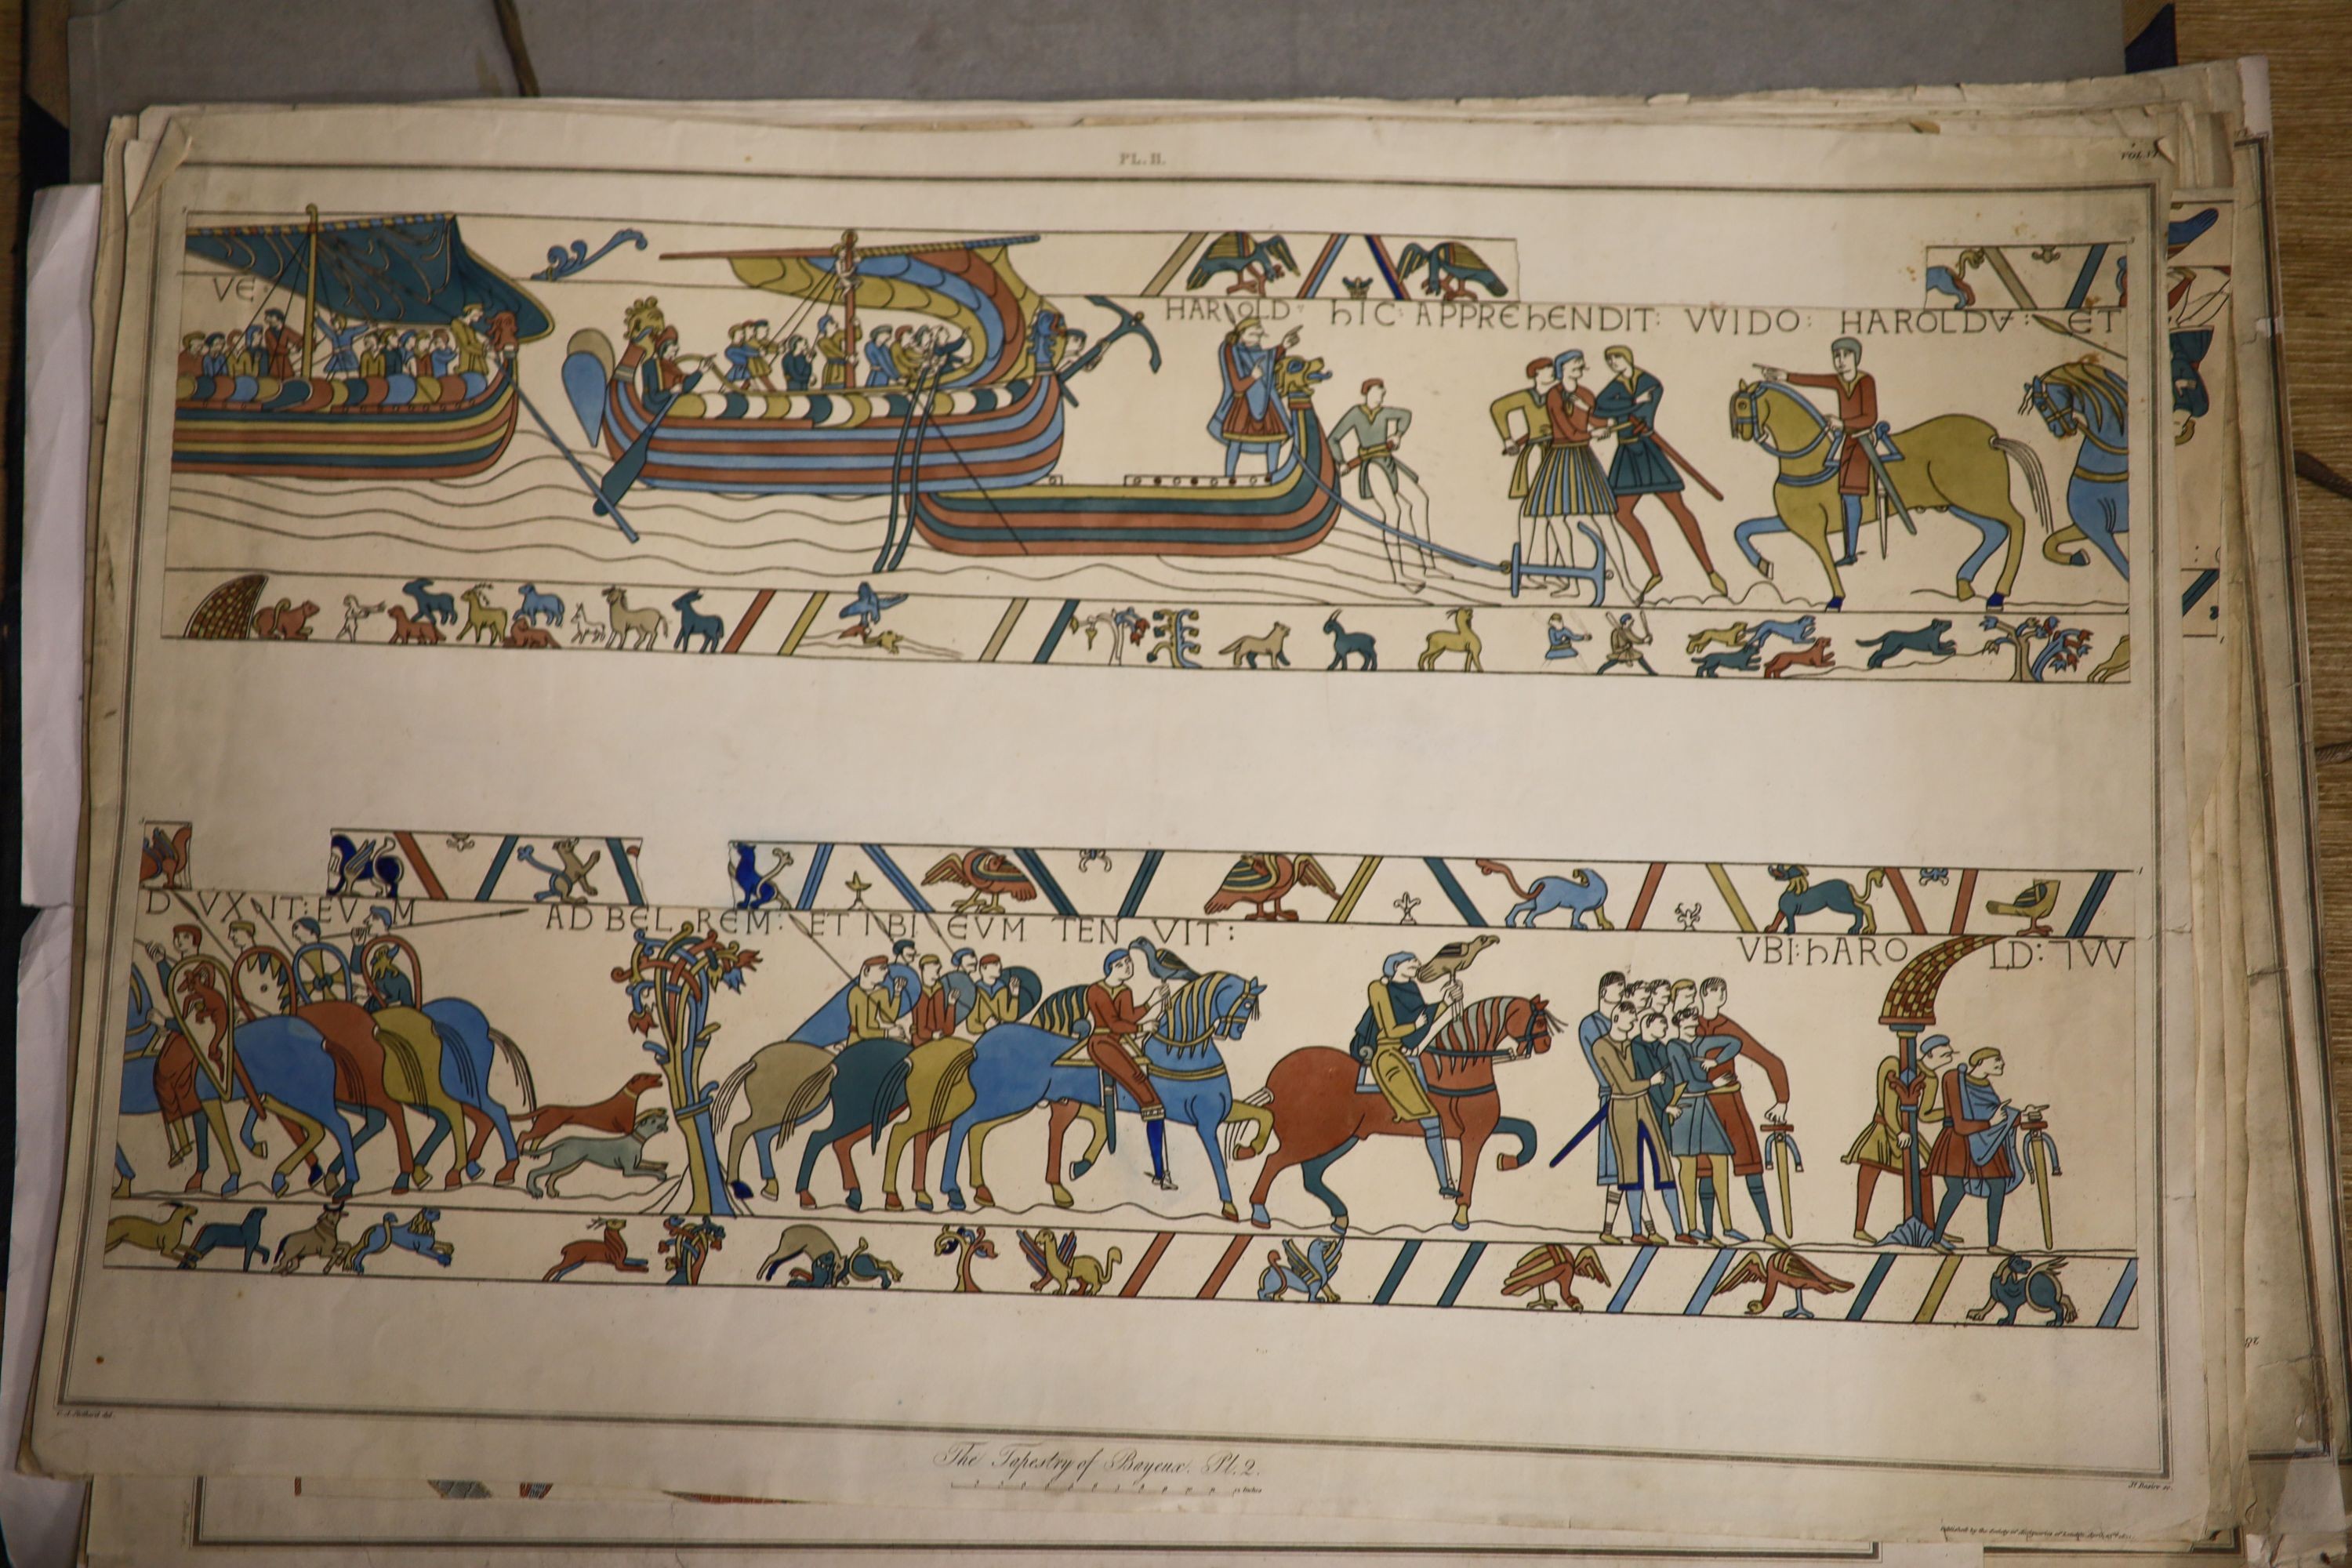 PL. II.
VOL. VI
VE
HAROLD: hIC: APPREhENDIT: VVIDO: HAROLDV: ET
DVXIT: EVM AD BELREM: ET IBI EVM TENVIT:
VBI: hAROLD: ⁊ VV
C. A. Stothard del.
The Tapestry of Bayeux. Pl. 2.
Js. Basire sc.
Published by the Society of Antiquaries of London, April